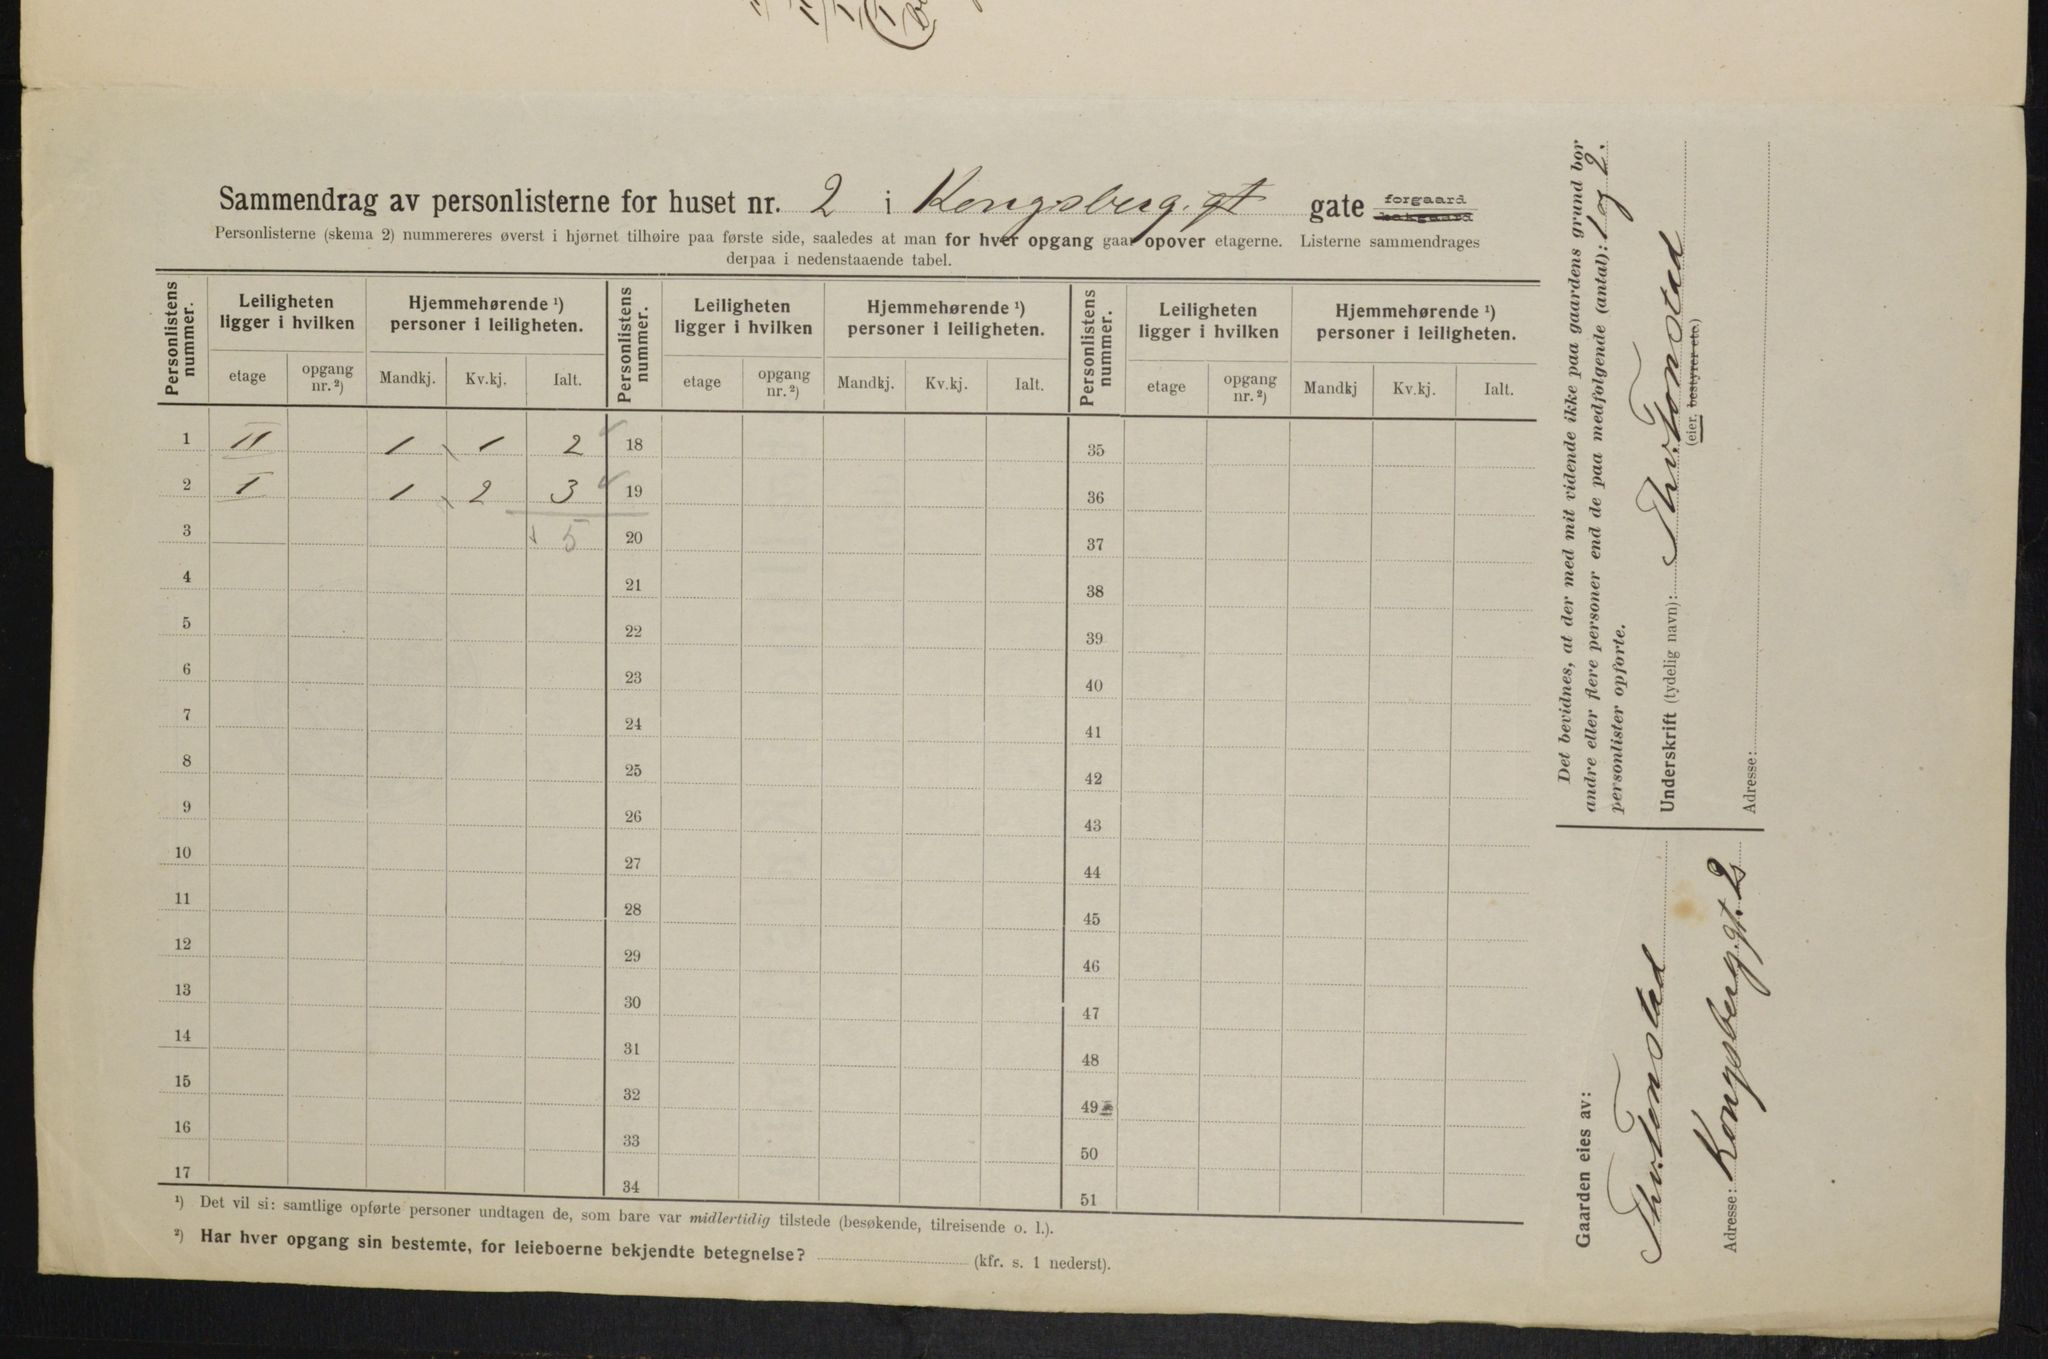 Sammendrag av personlisterne for huset nr. 2 i Kongsberg. gt gate forgaard bakgaard
Personlisterne (skema 2) nummereres øverst i hjørnet tilhøire paa første side, saaledes at man for hver opgang gaar opover etagerne. Listerne sammendrages
derpaa i nedenstaaende tabel.
Personlistens nummer. Leiligheten ligger i hvilken Hjemmehørende ¹) personer i leiligheten. Personlistens nummer. Leiligheten ligger i hvilken Hjemmehørende ¹) personer i leiligheten. Personlistens nummer. Leiligheten ligger i hvilken Hjemmehørende ¹) personer i leiligheten.
etage opgang nr. ²) Mandkj. Kv.kj. Ialt. etage opgang nr. ²) Mandkj. Kv.kj. Ialt. etage opgang nr. ²) Mandkj Kv.kj. Ialt.
1 II 1 1 2 18 35
2 I 1 2 3 19 36
3 5 20 37
4 21 38
5 22 39
6 23 40
7 24 41
8 25 42
9 26 43
10 27 44
11 28 45
12 29 46
13 30 47
14 31 48
15 32 49
16 33 50
17 34 51
¹) Det vil si: samtlige opførte personer undtagen de, som bare var midlertidig tilstede (besøkende, tilreisende o. l.).
²) Har hver opgang sin bestemte, for leieboerne bekjendte betegnelse? (kfr. s. 1 nederst).
Det bevidnes, at der med mit vidende ikke paa gaardens grund bor
andre eller flere personer end de paa medfølgende (antal): 1 og 2.
personlister opførte.
Underskrift (tydelig navn): Thv. Tonstad
(eier, bestyrer etc.)
Adresse:
Gaarden eies av:
Thv. Tonstad
Adresse: Kongsberg. gt. 2